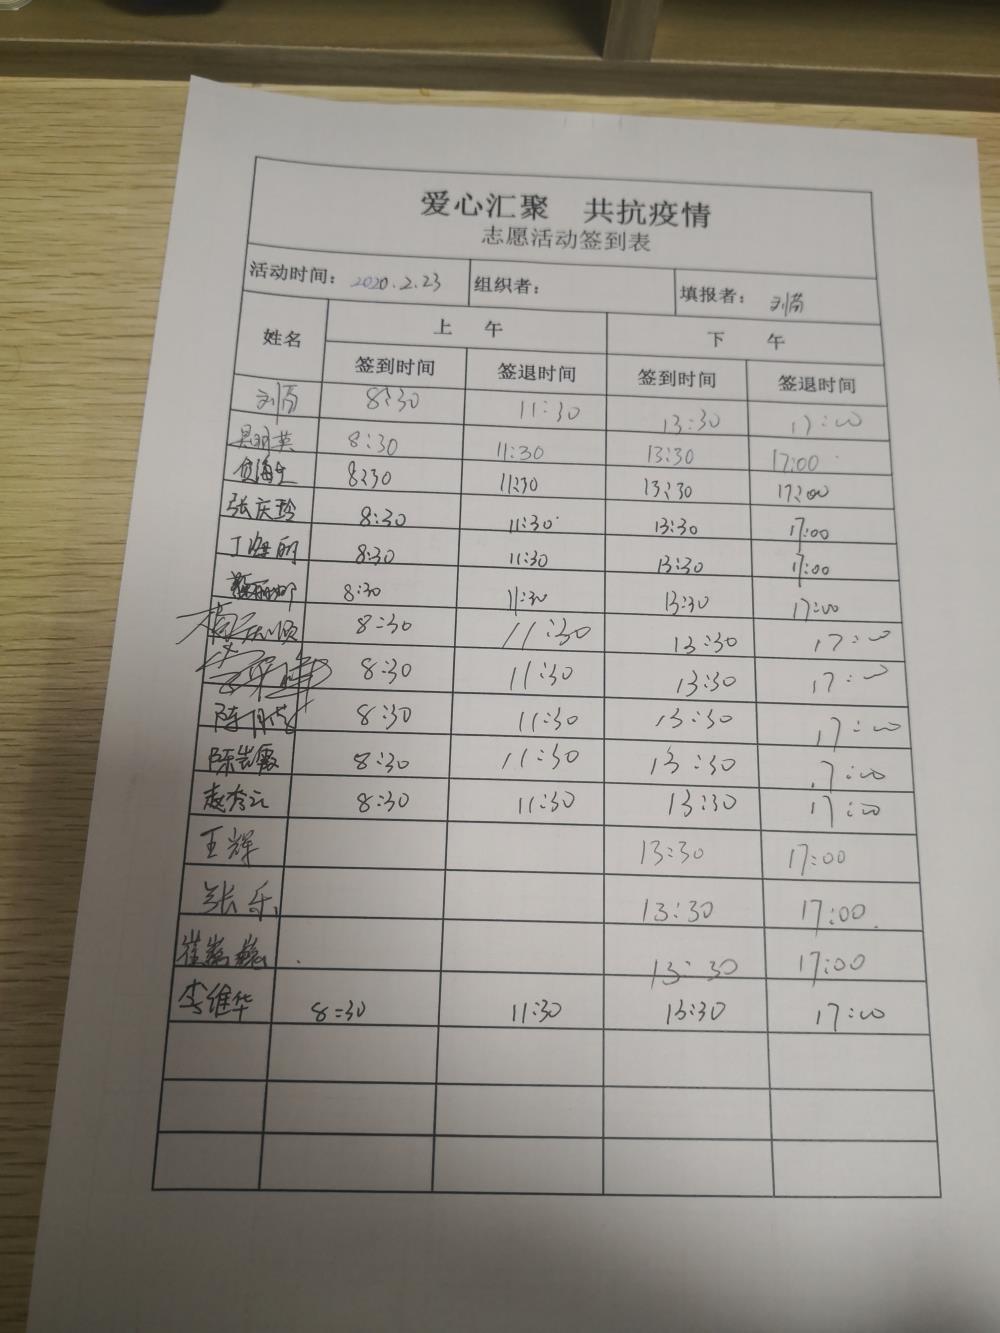 爱心汇聚 共抗疫情
志愿活动签到表
活动时间: 2020.2.23 组织者: 填报者:
姓名 上 午 下 午
签到时间 签退时间 签到时间 签退时间
8:30 11:30 13:30 17:00
8:30 11:30 13:30 17:00
8:30 11:30 13:30 17:00
张庆玲 8:30 11:30 13:30 17:00
丁海丽 8:30 11:30 13:30 17:00
8:30 11:30 13:30 17:00
8:30 11:30 13:30 17:00
8:30 11:30 13:30 17:00
8:30 11:30 13:30 17:00
8:30 11:30 13:30 17:00
赵秀云 8:30 11:30 13:30 17:00
王辉 13:30 17:00
张乐 13:30 17:00
13:30 17:00
李维华 8:30 11:30 13:30 17:00